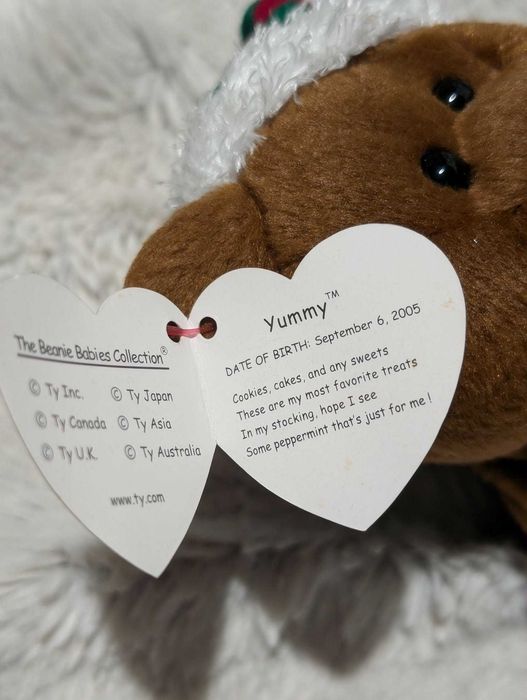 The Beanie Babies Collection®
© Ty Inc. © Ty Japan
© Ty Canada © Ty Asia
© Ty U.K. © Ty Australia
www.ty.com
Yummy™
DATE OF BIRTH: September 6, 2005
Cookies, cakes, and any sweets
These are my most favorite treats
In my stocking, hope I see
Some peppermint that's just for me !